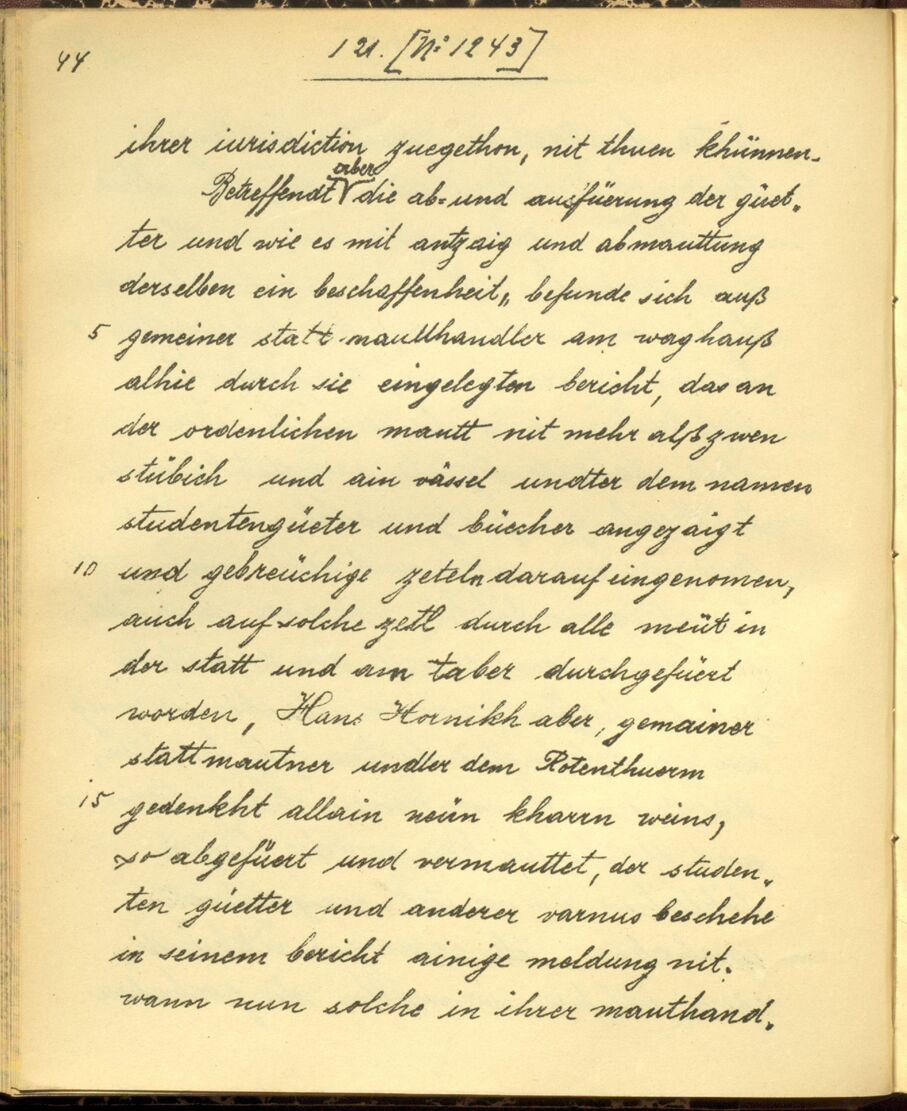 44
121. [No 1243]
ihrer iurisdiction zuegethon, nit thuen khünnen.
aber
Betreffendt die ab- und ausfüerung der güet„
ter und wie es mit antzaig und abmauttung
derselben ein beschaffenheit„ befunde sich auß
5 gemeiner statt mautthandler am waghauß
alhie durch sie eingelegten bericht, das an
der ordenlichen mautt nit mehr alß zwen
stübich und ain vässel undter dem namen
studentengüeter und büecher angezaigt
10 und gebreüchige zeteln darauf eingenomen,
auch auf solche zetl durch alle meüt in
der statt und am taber durchgefüert
worden, Hans Hornikh aber, gemainer
stattmautner undter dem Rotenthuerm
15 gedenkht allain neün kharrn weins,
so abgefüert und vermauttet, der studen„
ten güetter und anderer varnus beschehe
in seinem bericht ainige meldung nit.
wann nun solche in ihrer mauthand„